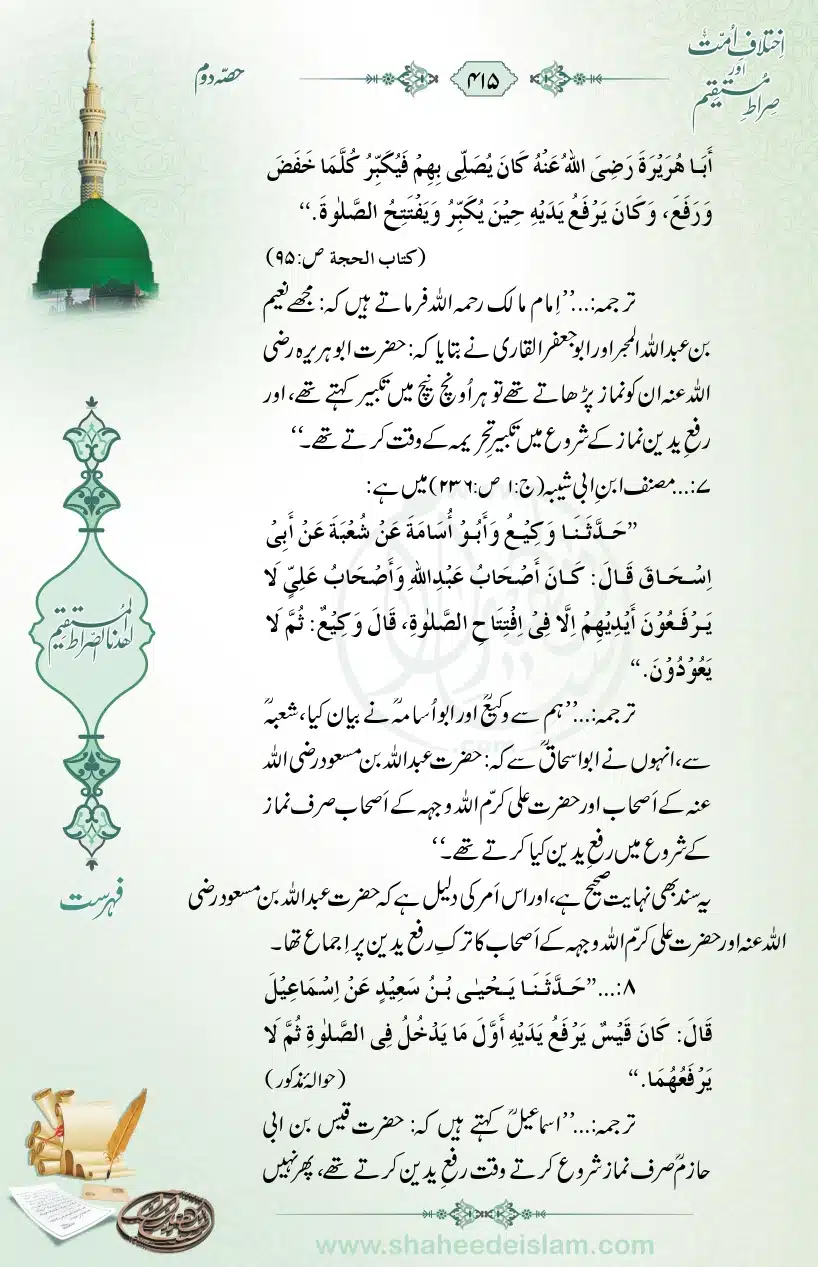 اِختلافِ اُمّت
اور
صِراطِ مُستقیم
۴۱۵
حصّہ دوم
أَبَا هُرَيْرَةَ رَضِىَ اللهُ عَنْهُ كَانَ يُصَلِّى بِهِمْ فَيُكَبِّرُ كُلَّمَا خَفَضَ
وَرَفَعَ، وَكَانَ يَرْفَعُ يَدَيْهِ حِيْنَ يُكَبِّرُ وَيَفْتَتِحُ الصَّلٰوةَ.‘‘
(كتاب الحجة ص:۹۵)
ترجمہ:...’’اِمام مالک رحمہ اللہ فرماتے ہیں کہ: مجھے نعیم
بن عبداللہ المجمر اور ابوجعفر القاری نے بتایا کہ: حضرت ابوہریرہ رضی
اللہ عنہ ان کو نماز پڑھاتے تھے تو ہر اُونچ نیچ میں تکبیر کہتے تھے، اور
رفعِ یدین نماز کے شروع میں تکبیرِ تحریمہ کے وقت کرتے تھے۔‘‘
۷:...مصنف ابنِ ابی شیبہ (ج:۱ ص:۲۳۶) میں ہے:
’’حَدَّثَنَا وَكِيْعُ وَأَبُوْ أُسَامَةَ عَنْ شُعْبَةَ عَنْ أَبِىْ
اِسْحَاقَ قَالَ: كَانَ أَصْحَابُ عَبْدِاللهِ وَأَصْحَابُ عَلِىٍّ لَا
يَرْفَعُوْنَ أَيْدِيْهِمْ اِلَّا فِىْ اِفْتِتَاحِ الصَّلٰوةِ، قَالَ وَكِيْعٌ: ثُمَّ لَا
يَعُوْدُوْنَ.‘‘
ترجمہ:...’’ہم سے وکیعؒ اور ابواُسامہؒ نے بیان کیا، شعبہؒ
سے، انہوں نے ابواسحاقؒ سے کہ: حضرت عبداللہ بن مسعود رضی اللہ
عنہ کے اَصحاب اور حضرت علی کرّم اللہ وجہہ کے اَصحاب صرف نماز
کے شروع میں رفعِ یدین کیا کرتے تھے۔‘‘
یہ سند بھی نہایت صحیح ہے، اور اس اَمر کی دلیل ہے کہ حضرت عبداللہ بن مسعود رضی
اللہ عنہ اور حضرت علی کرّم اللہ وجہہ کے اَصحاب کا ترکِ رفعِ یدین پر اِجماع تھا۔
۸:...’’حَدَّثَنَا يَحْيٰى بْنُ سَعِيْدٍ عَنْ اِسْمَاعِيْلَ
قَالَ: كَانَ قَيْسٌ يَرْفَعُ يَدَيْهِ أَوَّلَ مَا يَدْخُلُ فِى الصَّلٰوةِ ثُمَّ لَا
يَرْفَعُهُمَا.‘‘ (حوالۂ مذکور)
ترجمہ:...’’اسماعیلؒ کہتے ہیں کہ: حضرت قیس بن ابی
حازمؒ صرف نماز شروع کرتے وقت رفعِ یدین کرتے تھے، پھر نہیں
اهدنا الصراط المستقیم
فہرست
www.shaheedeislam.com